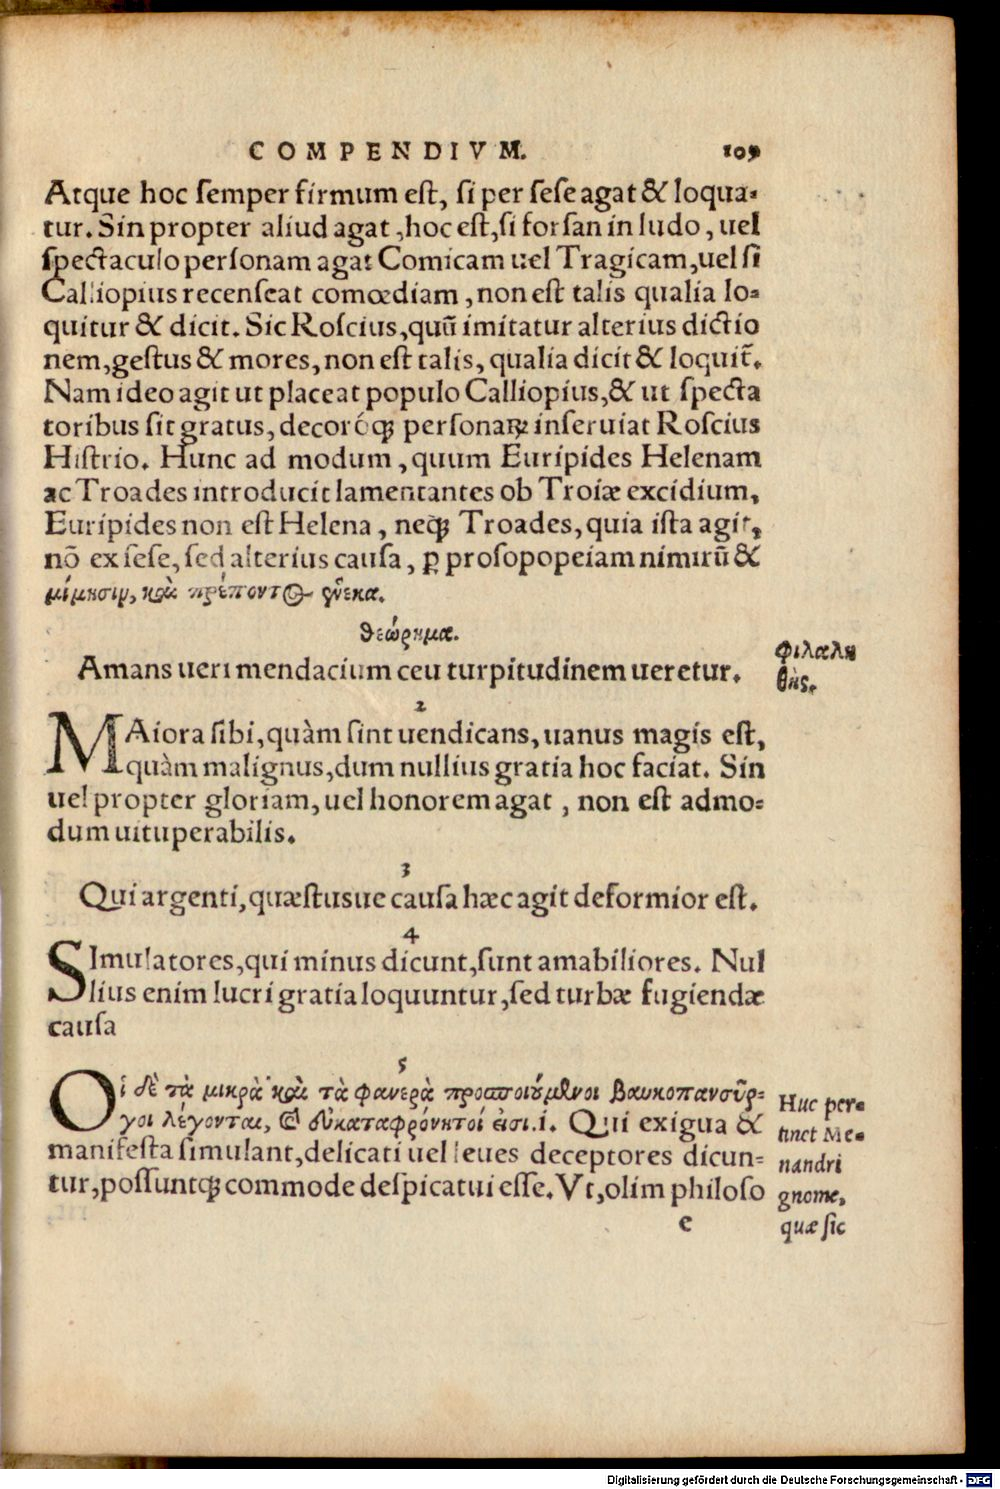 COMPENDIVM. 109
Atque hoc semper firmum est, si per sese agat & loqua-
tur. Sin propter aliud agat, hoc est, si forsan in ludo, uel
spectaculo personam agat Comicam uel Tragicam, uel si
Calliopius recenseat comœdiam, non est talis qualia lo-
quitur & dicit. Sic Roscius, quũ imitatur alterius dictio
nem, gestus & mores, non est talis, qualia dicit & loquit̃.
Nam ideo agit ut placeat populo Calliopius, & ut specta
toribus sit gratus, decoróq; personaꝝ inseruiat Roscius
Histrio. Hunc ad modum, quum Euripides Helenam
ac Troades introducit lamentantes ob Troiæ excidium,
Euripides non est Helena, neq; Troades, quia ista agit,
nõ ex sese, sed alterius causa, ꝑ prosopopeiam nimirũ &
μίμησιν, καὶ πρέποντος ἕνεκα.
θεώρημα.
Amans ueri mendacium ceu turpitudinem ueretur.
φιλαλη
θής.
2
MAiora sibi, quàm sint uendicans, uanus magis est,
quàm malignus, dum nullius gratia hoc faciat. Sin
uel propter gloriam, uel honorem agat, non est admo-
dum uituperabilis.
3
Qui argenti, quæstusue causa hæc agit deformior est.
4
SImulatores, qui minus dicunt, sunt amabiliores. Nul
lius enim lucri gratia loquuntur, sed turbæ fugiendæ
causa
5
Οἱ δὲ τὰ μικρὰ καὶ τὰ φανερὰ προσποιούμενοι βαυκοπανοῦρ-
γοι λέγονται, καὶ εὐκαταφρόνητοί εἰσι. i. Qui exigua &
manifesta simulant, delicati uel leues deceptores dicun-
tur, possuntq; commode despicatui esse. Vt, olim philoso
e
Huc per-
tinet Me-
nandri
gnome,
quæ sic
Digitalisierung gefördert durch die Deutsche Forschungsgemeinschaft - DFG